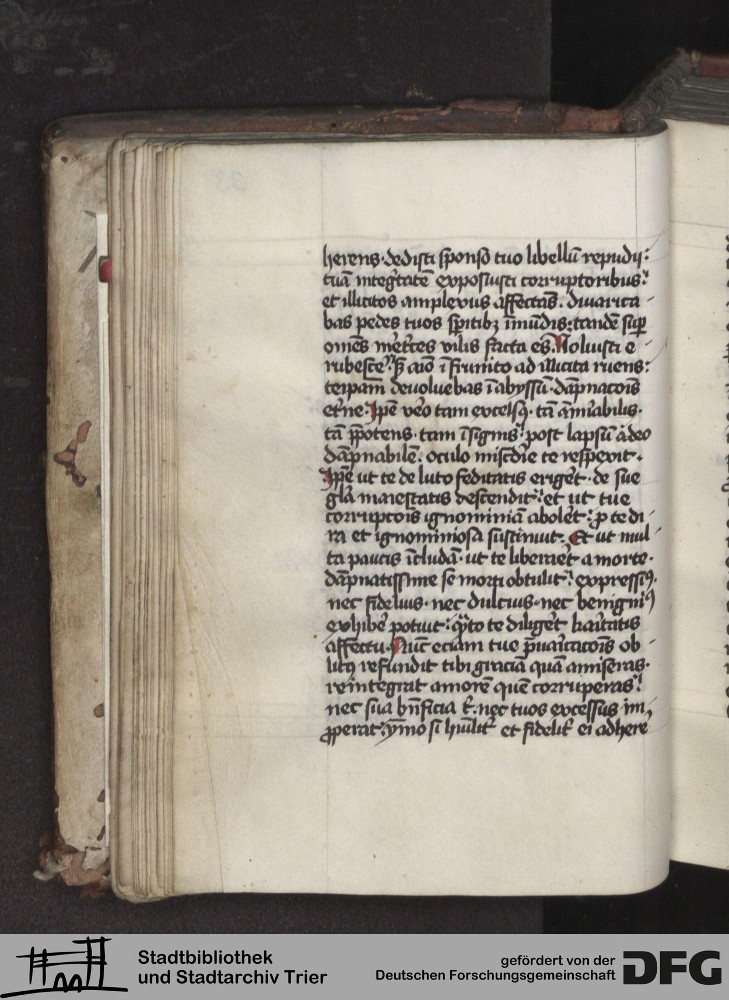 herens. dedisti sponso tuo libellū repudij:
tuā integ̓tatē exposuisti corruptoribus:
et illicitos amplexus affectās. diuarica-
bas pedes tuos sp̄itibȝ īmūdis: tandē suꝑ
om̄es met̓ces vilis facta es. Noluisti e-
rubesce̓: ī ad illicita ruens:
teip̄am deuoluebas ī abyssū. dāpnac̄ois
et̓ne. Ip̄e v̓o tam excelsꝰ. tā āmirabilis.
tā p̄potens. tam īsignis: post lapsū adeo
dāpnabilē. oculo mīsc̄die te respexit.
Ip̄e ut te de luto feditatis erig̓et. de sue
gl̄a maiestatis descendit: et ut tue
corrupc̄ois ignominiā abolet̓: ꝓ te di-
ra et ignominiosa sustinuit. Et ut mul-
ta paucis īcludā. ut te libera̓et a morte.
dāpnatissime se morti obtulit: expressiꝰ.
nec fidelius. nec dulcius. nec benigniꝰ
exhibe̓ potuit: q̄to te dilig̓et ka̓itatis
affectu. Nūc eciam tue p̄ua̓icac̄ois ob-
litꝰ refundit tibi graciā quā amiseras.
reintegrat amorē quē corruperas:
nec sua bn̄ficia t̓. nec tuos excessus im-
ꝓperat: ymo si hūilit̓ et fidelit̓ ei adhere
Stadtbibliothek
und Stadtarchiv Trier
gefördert von der
Deutschen Forschungsgemeinschaft
DFG